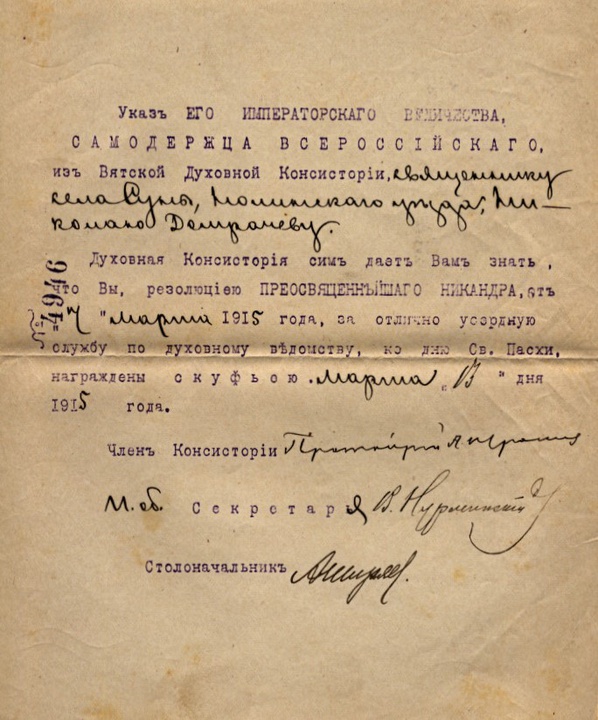 Указъ ЕГО ИМПЕРАТОРСКАГО ВЕЛИЧЕСТВА,
САМОДЕРЖЦА ВСЕРОССІЙСКАГО,
изъ Вятской Духовной Консисторіи, священнику
села Суны, Нолинскаго уѣзда, Ни-
колаю Домрачеву.
Духовная Консисторія симъ даетъ Вамъ знать,
что Вы, резолюціею ПРЕОСВЯЩЕННѢЙШАГО НИКАНДРА, отъ
"7" марта 1915 года, за отлично усердную
службу по духовному вѣдомству, ко дню Св. Пасхи,
награждены скуфьою. Марта "13" дня
1915 года.
№ 4946
Членъ Консисторіи Протоіерей
И. об. Секретаря В. Нурминскій
Столоначальникъ